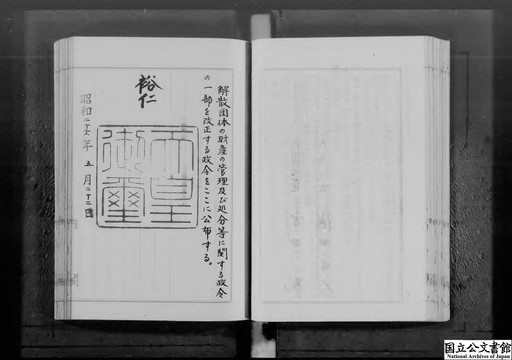 解散団体の財産の管理及び処分等に関する政令
の一部を改正する政令をここに公布する。
裕仁
天皇
御璽
昭和二十六年五月二十二日
国立公文書館
National Archives of Japan